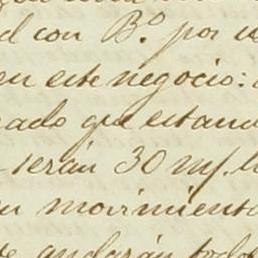 d con B.º por
en este negocio:
ado que estand
serán 30 m/. l
u movimiento
andarán todo